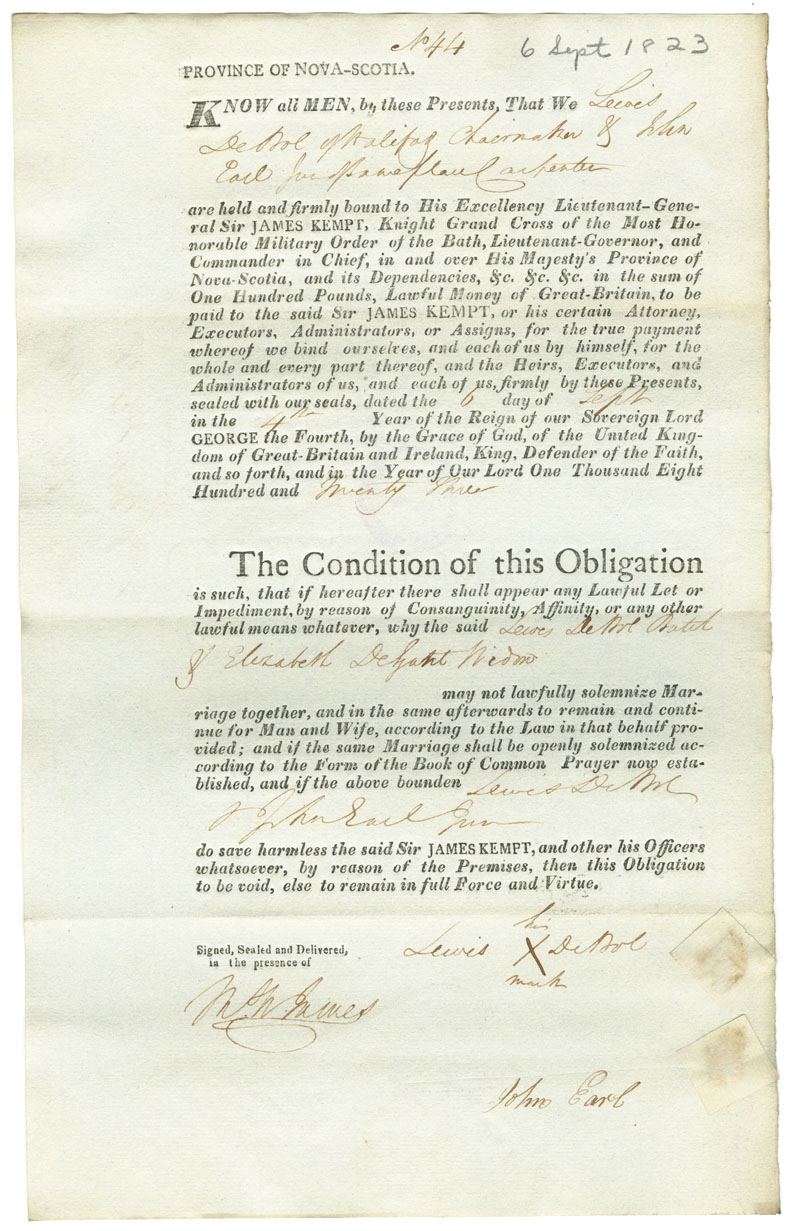 No 44
6 Sept 1823
PROVINCE OF NOVA-SCOTIA.
KNOW all MEN, by these Presents, That We Lewis
DeBol of Halifax Chairmaker & John
Earl Junr Same place Carpenter
are held and firmly bound to His Excellency Lieutenant-Gene-
ral Sir JAMES KEMPT, Knight Grand Cross of the Most Ho-
norable Military Order of the Bath, Lieutenant-Governor, and
Commander in Chief, in and over His Majesty's Province of
Nova-Scotia, and its Dependencies, &c. &c. &c. in the sum of
One Hundred Pounds, Lawful Money of Great-Britain, to be
paid to the said Sir JAMES KEMPT, or his certain Attorney,
Executors, Administrators, or Assigns, for the true payment
whereof we bind ourselves, and each of us by himself, for the
whole and every part thereof, and the Heirs, Executors, and
Administrators of us, and each of us, firmly by these Presents,
sealed with our seals, dated the 6 day of Sept
in the 4th Year of the Reign of our Sovereign Lord
GEORGE the Fourth, by the Grace of God, of the United King-
dom of Great-Britain and Ireland, King, Defender of the Faith,
and so forth, and in the Year of Our Lord One Thousand Eight
Hundred and Twenty Three
The Condition of this Obligation
is such, that if hereafter there shall appear any Lawful Let or
Impediment, by reason of Consanguinity, Affinity, or any other
lawful means whatever, why the said Lewis DeBol Batch
& Elizabeth Widow
may not lawfully solemnize Mar-
riage together, and in the same afterwards to remain and conti-
nue for Man and Wife, according to the Law in that behalf pro-
vided; and if the same Marriage shall be openly solemnized ac-
cording to the Form of the Book of Common Prayer now esta-
blished, and if the above bounden Lewis DeBol
& John Earl Junr
do save harmless the said Sir JAMES KEMPT, and other his Officers
whatsoever, by reason of the Premises, then this Obligation
to be void, else to remain in full Force and Virtue.
Signed, Sealed and Delivered,
in the presence of
his
Lewis X DeBol
mark
James
John Earl